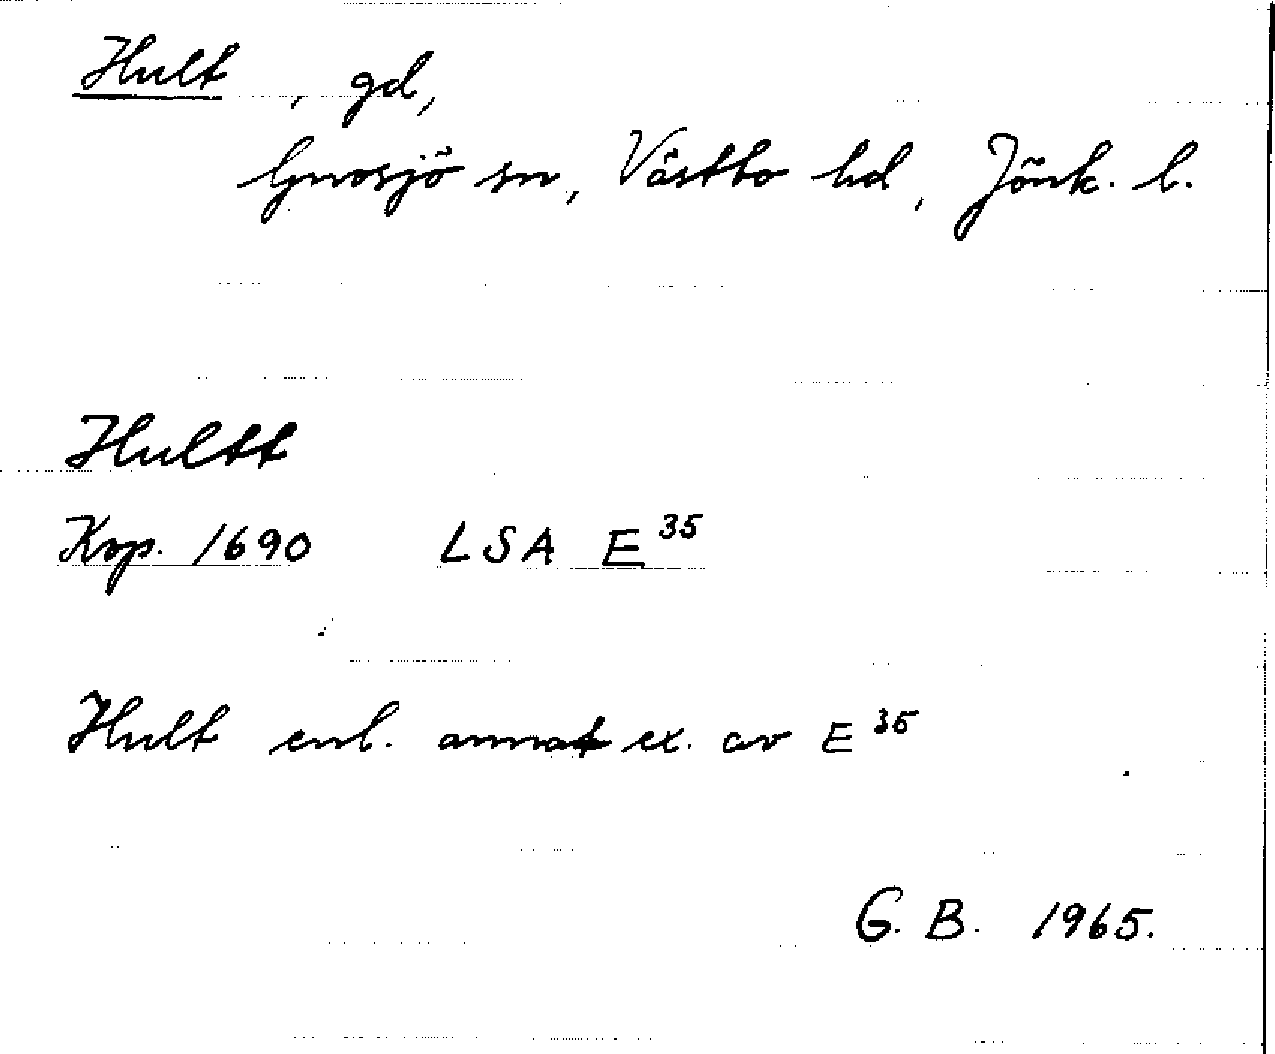 Hult, gd,
Gnosjö sn, Västbo hd, Jönk. l.
Hultt
Kop. 1690 LSA E 35
Hult enl. annat ex. av E 35
G. B. 1965.